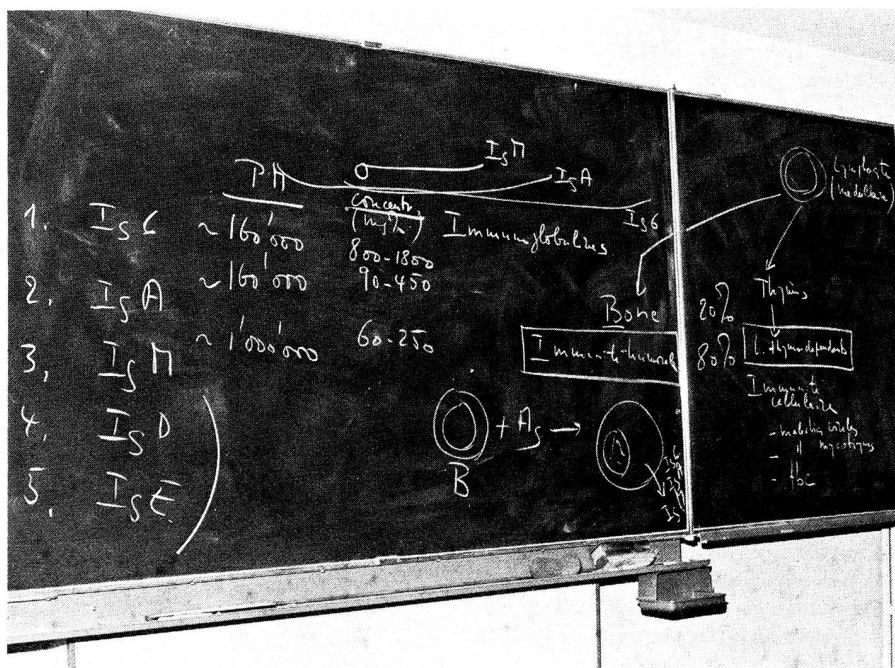 PM
concentr.
(mg%)
IgM
IgA
IgG
Immunoglobulines
1. IgG ~160'000 800-1800
2. IgA ~160'000 90-450
3. IgM ~1'000'000 60-250
4. IgD
5. IgE
Bone
Immunité humorale
B + Ag →
IgG
Ig
Lymphocyte
(médullaire)
Thymus
20%
80%
L. thymo dépendants
Immunité
cellulaire
- maladies virales
- " mycotiques
- tbc